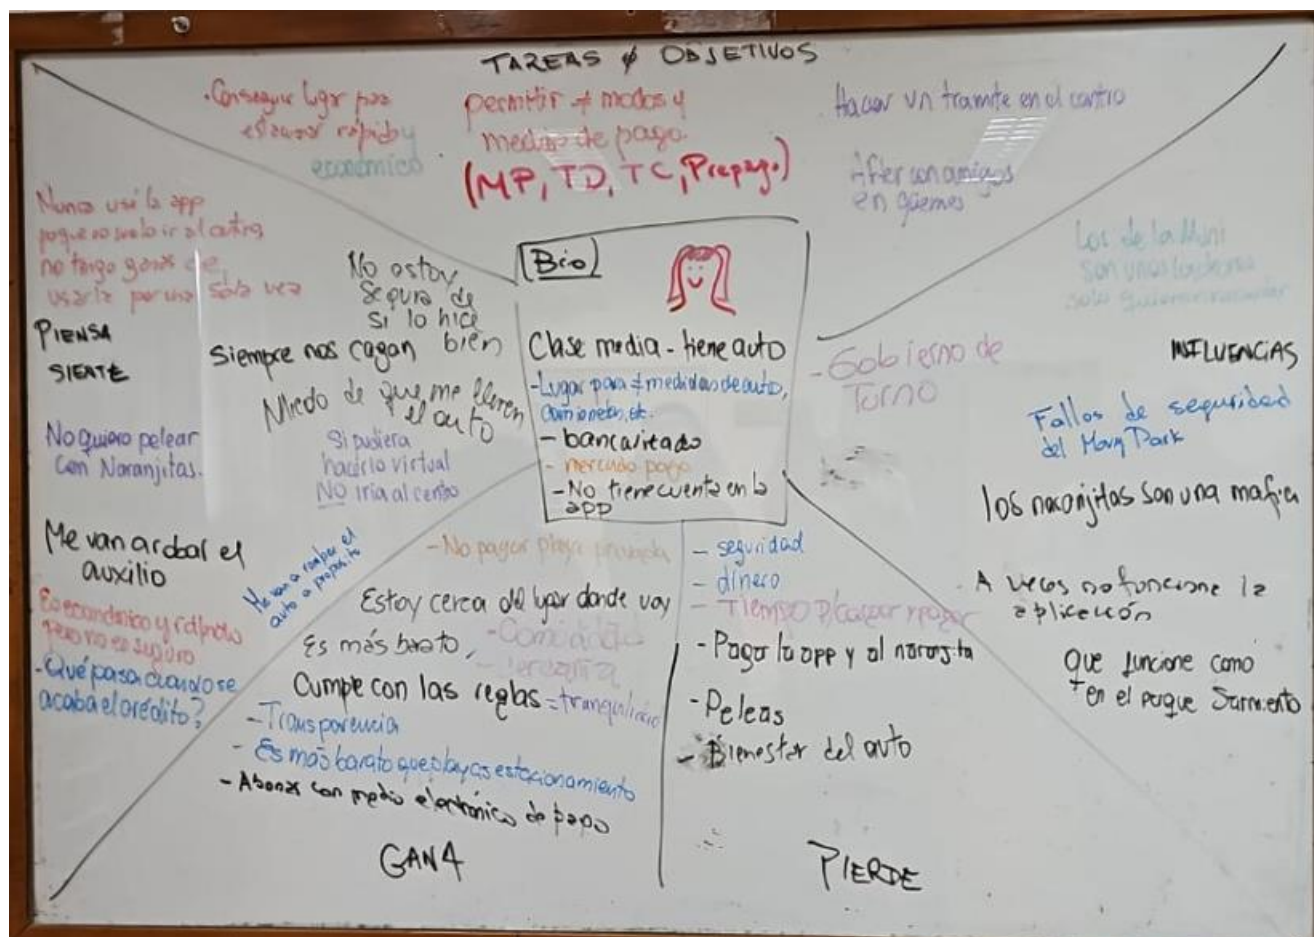 TAREAS y OBJETIVOS
·Conseguir lugar para
estacionar rápido y
económico
permitir ≠ modos y
medios de pago.
(MP, TD, TC, Prepago.)
Hacer un tramite en el centro
After con amigos
en güemes
Nunca usé la app
porque no suelo ir al centro,
no tengo ganas de
usarla por una sola vez
PIENSA
SIENTE
No estoy
segura de
si lo hice
bien
Siempre nos cagan
Miedo de que me lleven
el auto
No quiero pelear
con Naranjitas.
Si pudiera
hacerlo virtual
NO iria al centro
Me van a robar el
auxilio
Me van a romper el
auto a propósito
Es económico y rápido
pero no es seguro
-Qué pasa cuando se
acaba el crédito?
Bio
Clase media - tiene auto
-Lugar para ≠ medidas de auto,
camionetas, etc.
- bancarizado
- mercado pago
- No tiene cuenta en la
app
Los de la Muni
son unos ladrones
solo quieren recaudar
INFLUENCIAS
-Gobierno de
Turno
Fallos de seguridad
del Movy Park
los naranjitas son una mafia
- A veces no funciona la
aplicación
que funcione como
en el parque Sarmiento
- No pagar playa privada
Estoy cerca del lugar donde voy
Es más barato,
- Comodidad
- cercanía
Cumpe con las reglas = tranquilidad
- Transparencia
- Es más barato que playas estacionamiento
- Abonar con medio electrónico de pago
GANA
- seguridad
- dinero
- Tiempo p/cargar y pagar
- Pagar la app y al naranjita
- Peleas
- Bienestar del auto
PIERDE